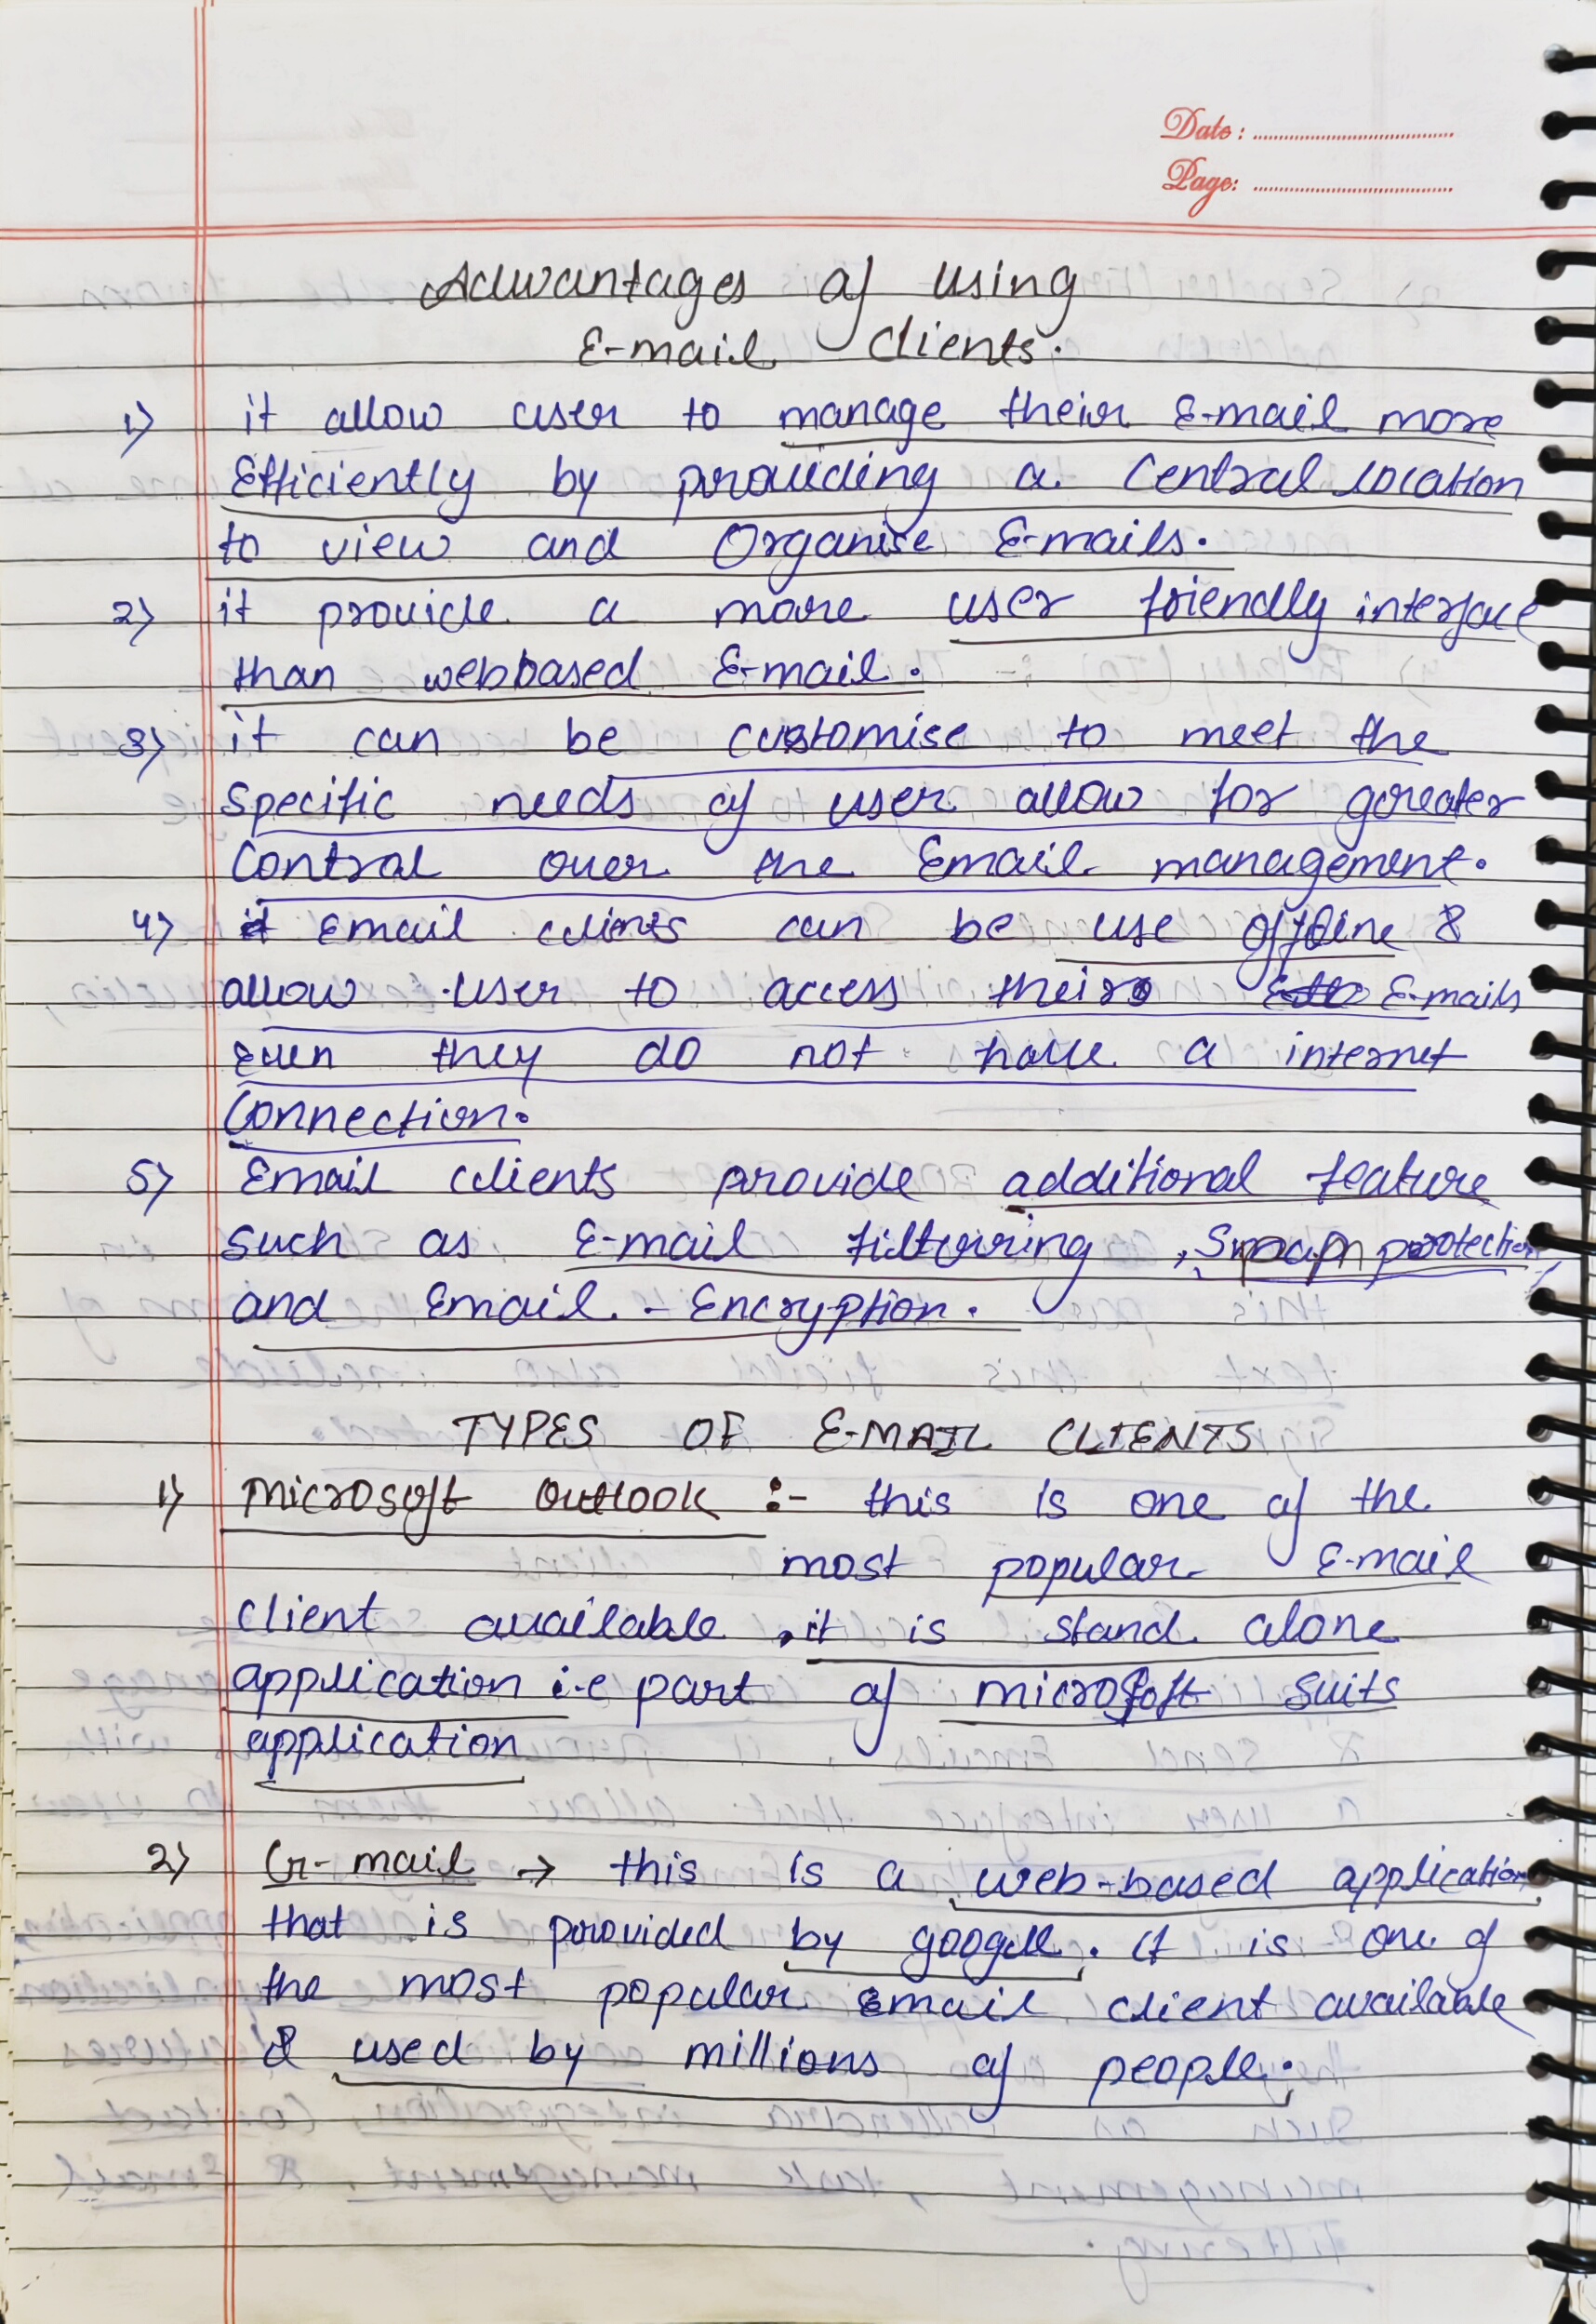 Date :
Page:
Advantages of using
E-mail clients.
1) it allow user to manage their E-mail more
Efficiently by providing a Central location
to view and Organise E-mails.
2) it provide a more user friendly interface
than webbased E-mail.
3) it can be customise to meet the
specific needs of user allow for greater
Control over the Email management.
4) Email clients can be use offline &
allow user to access their E-mails
even they do not have a internet
Connection.
5) Email clients provide additional feature
such as E-mail filtering, Spam protection
and Email - Encryption.
TYPES OF E-MAIL CLIENTS
1) microsoft outlook :- this is one of the
most popular E-mail
client available, it is stand alone
application i.e part of microsoft suits
application
2) G-mail → this is a web-based application
that is provided by google. it is one of
the most popular Email client available
& used by millions of people.